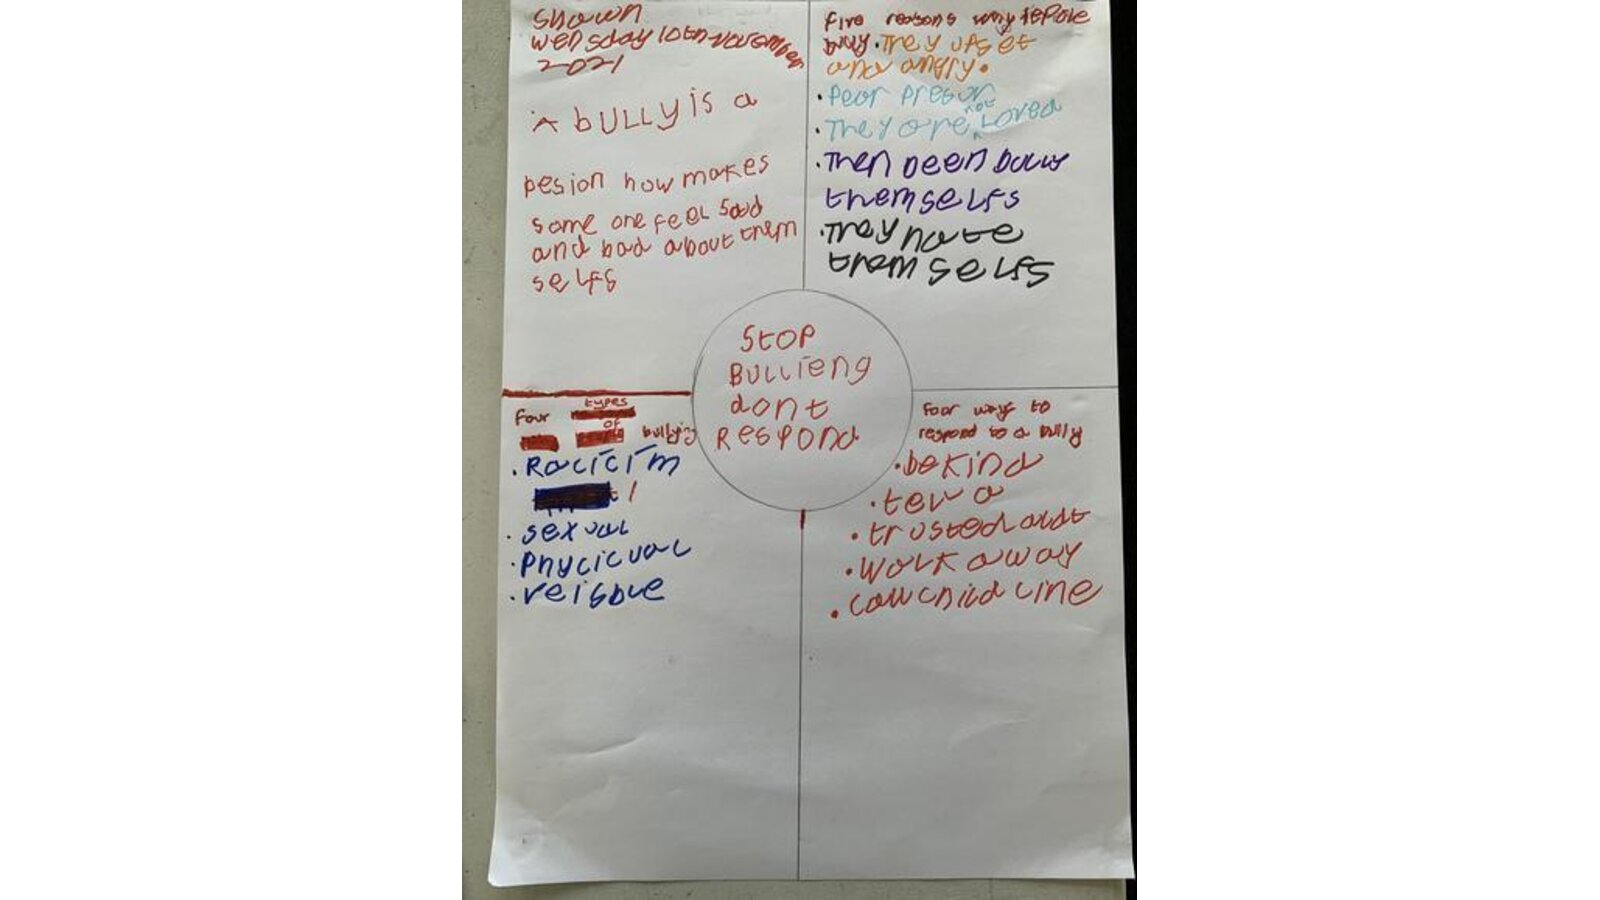 Shown
Wensday 10th November
2021
A bULLy is a
pesion how makes
some one feel sad
and bad about them
selfs
five reasons way pepole
bully. They upset
and angry.
. Peer preson
. They are not Loved
. Then been bully
themselfs
. They hate
themselfs
Stop
Bullieng
dont
Respond
four types
of bullying
. Racicim
. sexual
. Phycicual
four ways to
respond to a bully
. be kind
. tell a
. trusted audt
. Walk away
. Call child line